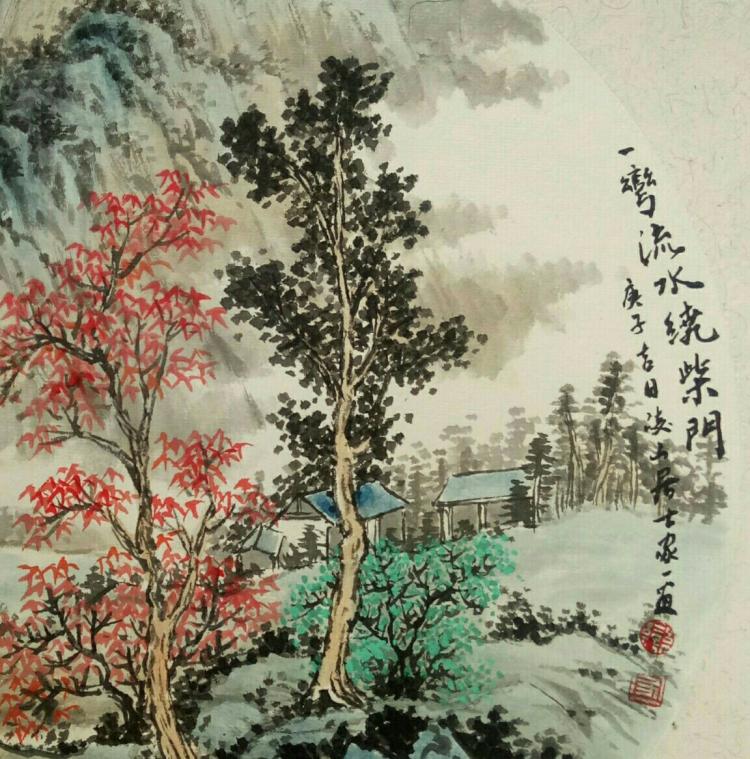 一彎流水繞柴門
庚子吉日凌山居士家一画